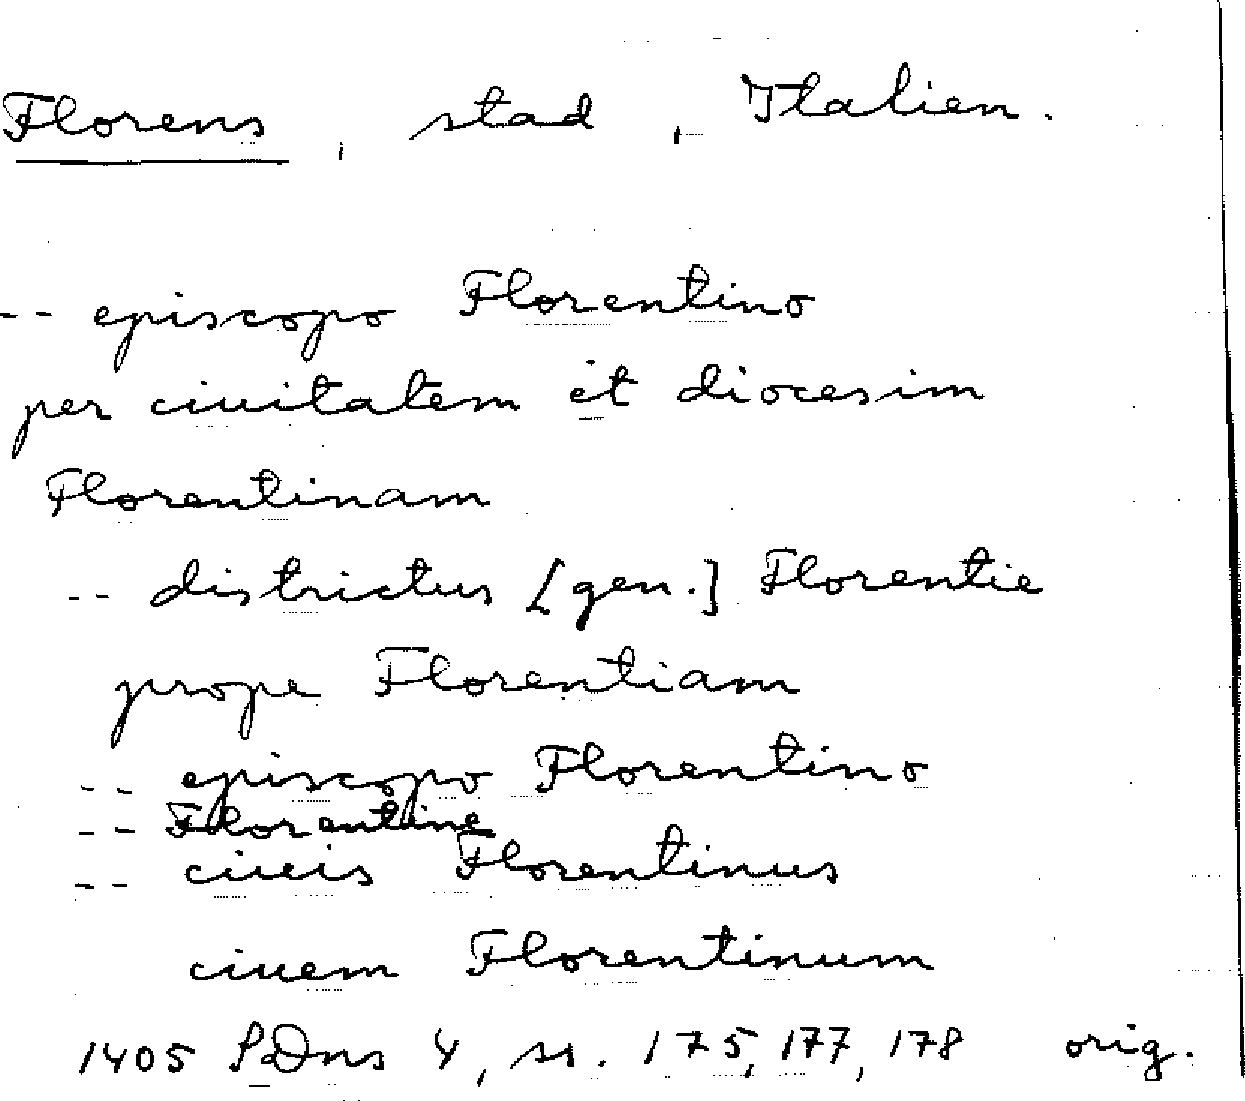 Florens, stad, Italien.
-- episcopo Florentino
per ciuitatem et diocesim
Florentinam
-- districtus [gen.] Florentie
prope Florentiam
-- episcopo Florentino
-- Florentine
-- ciuis Florentinus
ciuem Florentinum
1405 SDns 4, s. 175, 177, 178 orig.